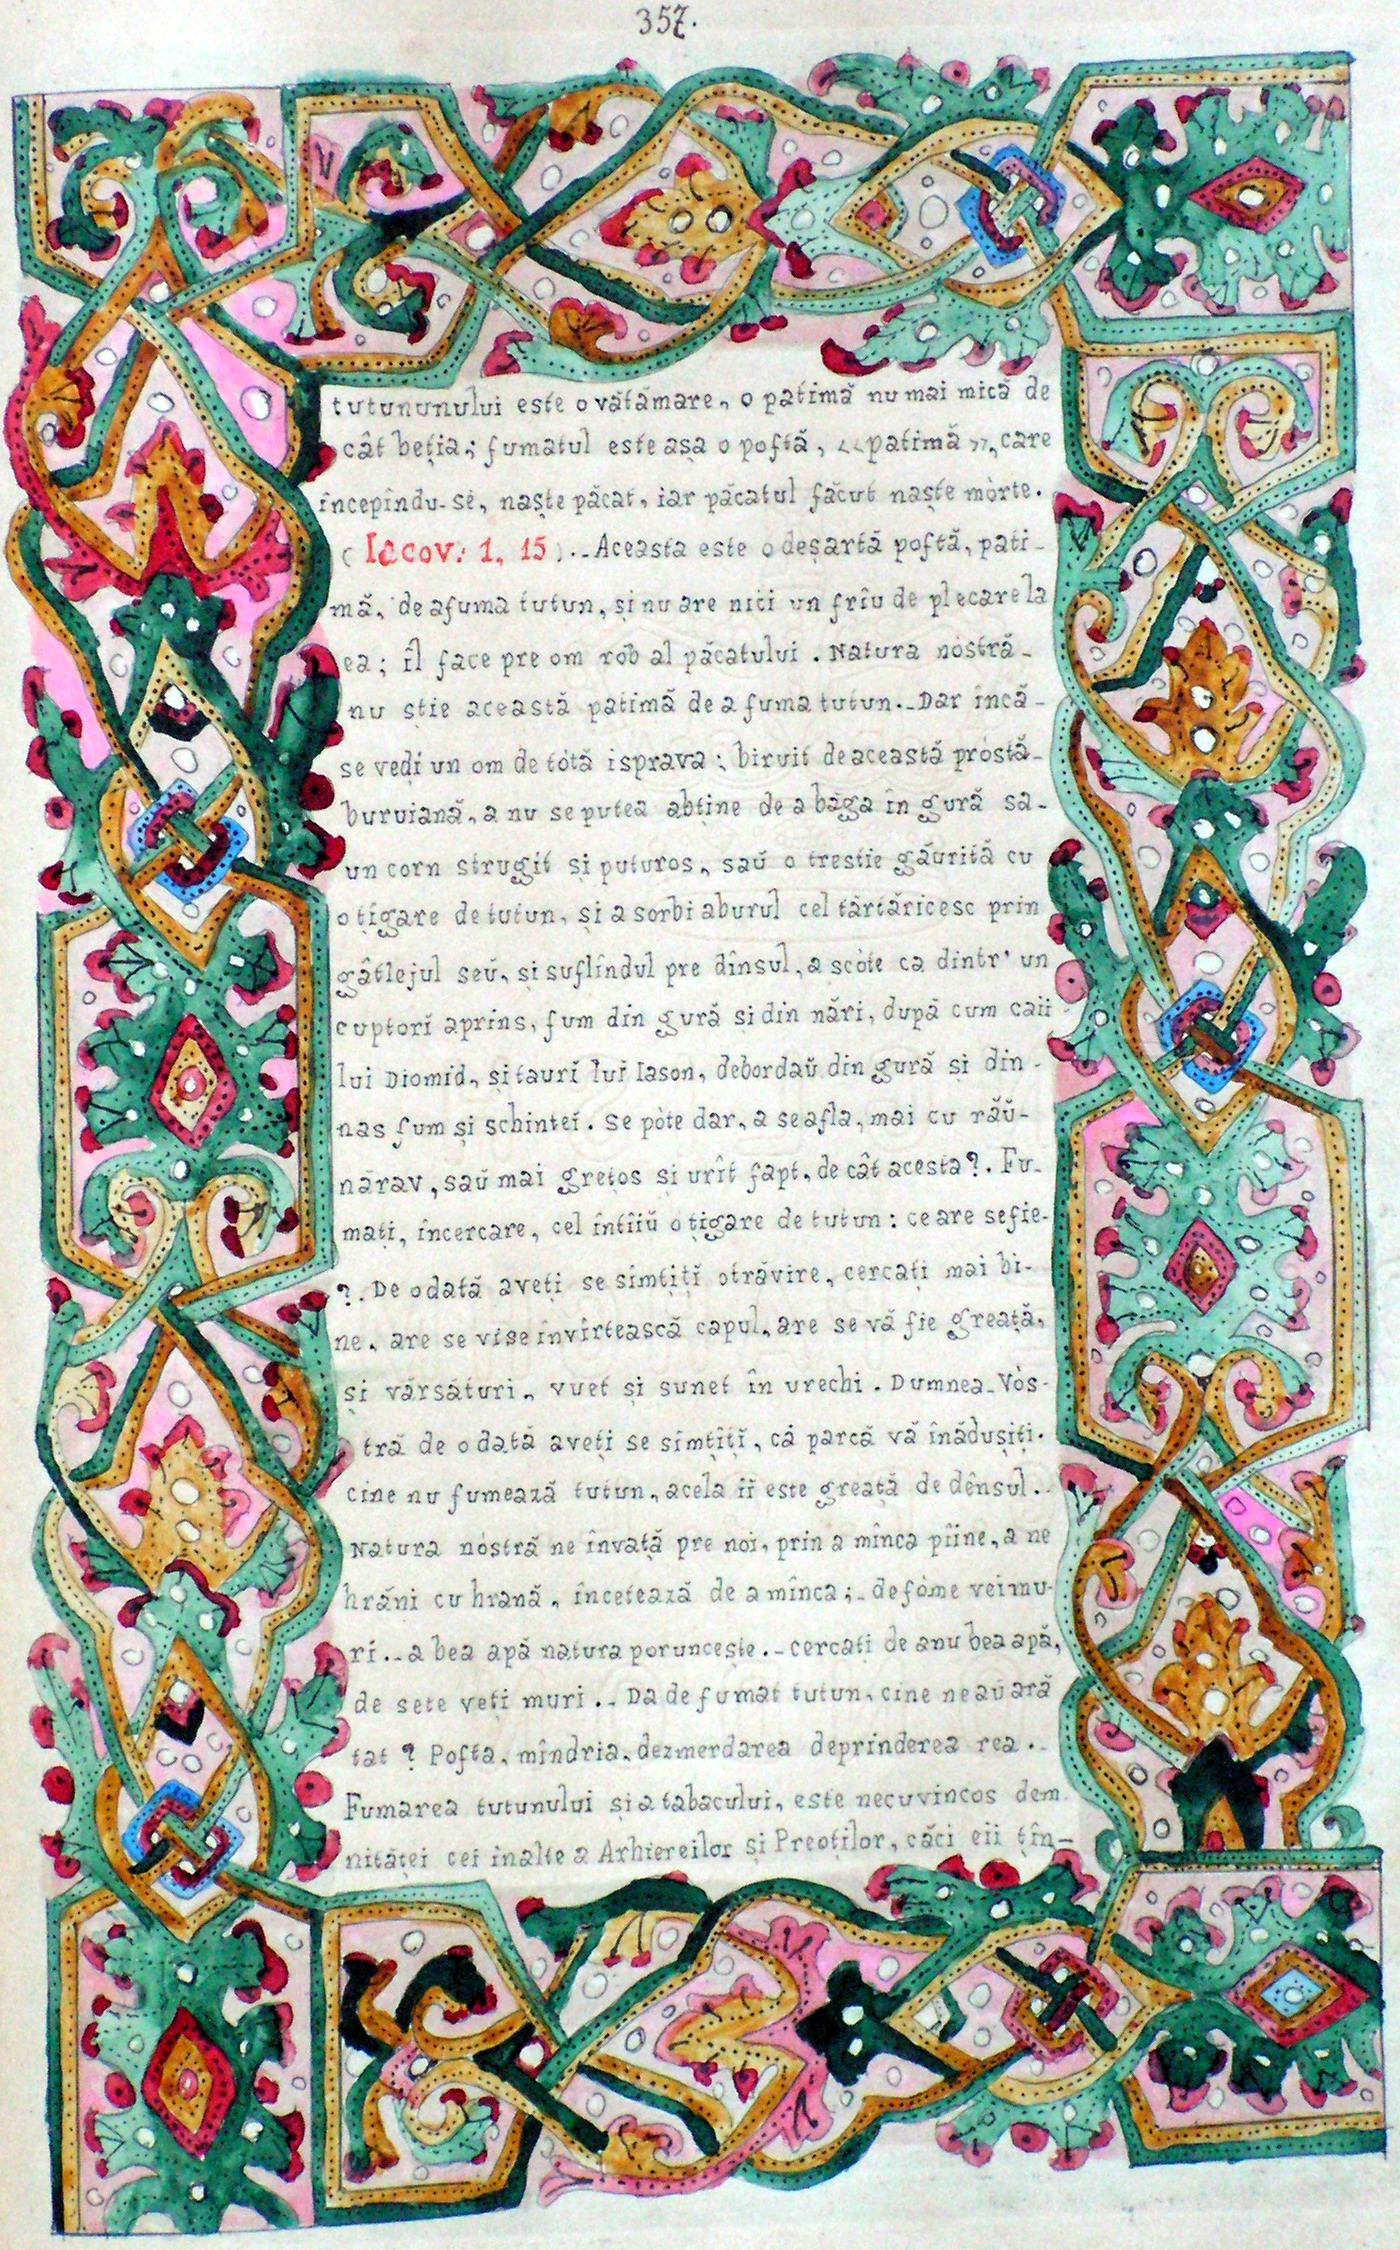 357.
tutununului este o vătămare, o patimă nu mai mică de
cât beția; fumatul este așa o poftă, „patimă”, care
începîndu-se, naște păcat, iar păcatul făcut naște mòrte.
( Iacov: 1, 15 ).-Aceasta este o deșartă poftă, pati-
mă, de a fuma tutun, și nu are nici un frîu de plecare la
ea; îl face pre om rob al păcatului. Natura nòstră-
nu știe această patimă de a fuma tutun.-Dar încă-
se vedi un om de tòtă isprava; biruit de această pròstă-
buruiană, a nu se putea abține de a băga în gură sa-
un corn strugit și puturos, saŭ o trestie găurită cu
o țigare de tutun, și a sorbi aburul cel tărtăricesc prin
gâtlejul seŭ, și suflîndul pre dînsul, a scòte ca dintr' un
cuptorĭ aprins, fum din gură si din nări, după cum caii
lui Diomid, și taurĭ luĭ Iason, debordaŭ din gură și din-
nas fum și schinteĭ. Se pòte dar, a se afla, mai cu răŭ-
nărav, saŭ mai grețos si urît fapt, de cât acesta?. Fu-
mați, încercare, cel întîiŭ o țigare de tutun: ce are se fie-
?. De odată aveți se simțițĭ otrăvire, cercați mai bi-
ne, are se vi se învîrtească capul, are se vă fie greață,
și vărsături, vuet și sunet în urechi. Dumnea-Vòs-
tră de odată aveți se simțițĭ, că parcă vă înădușiți.
cine nu fumează tutun, acela îĭ este greață de dênsul.-
Natura nòstră ne învață pre noi, prin a mînca pîine, a ne
hrăni cu hrană, încetează de a mînca;- de fòme vei mu-
ri.-a bea apă natura poruncește.-cercați de a nu bea apă,
de sete veți muri.- Da de fumat tutun, cine ne aŭ ară
tat? Pofta, mîndria, dezmerdarea deprinderea rea.-
Fumarea tutunului și a tabacului, este necuvincos dem
nităței cei înalte a Arhiereilor și Preoților, căci eii țin-